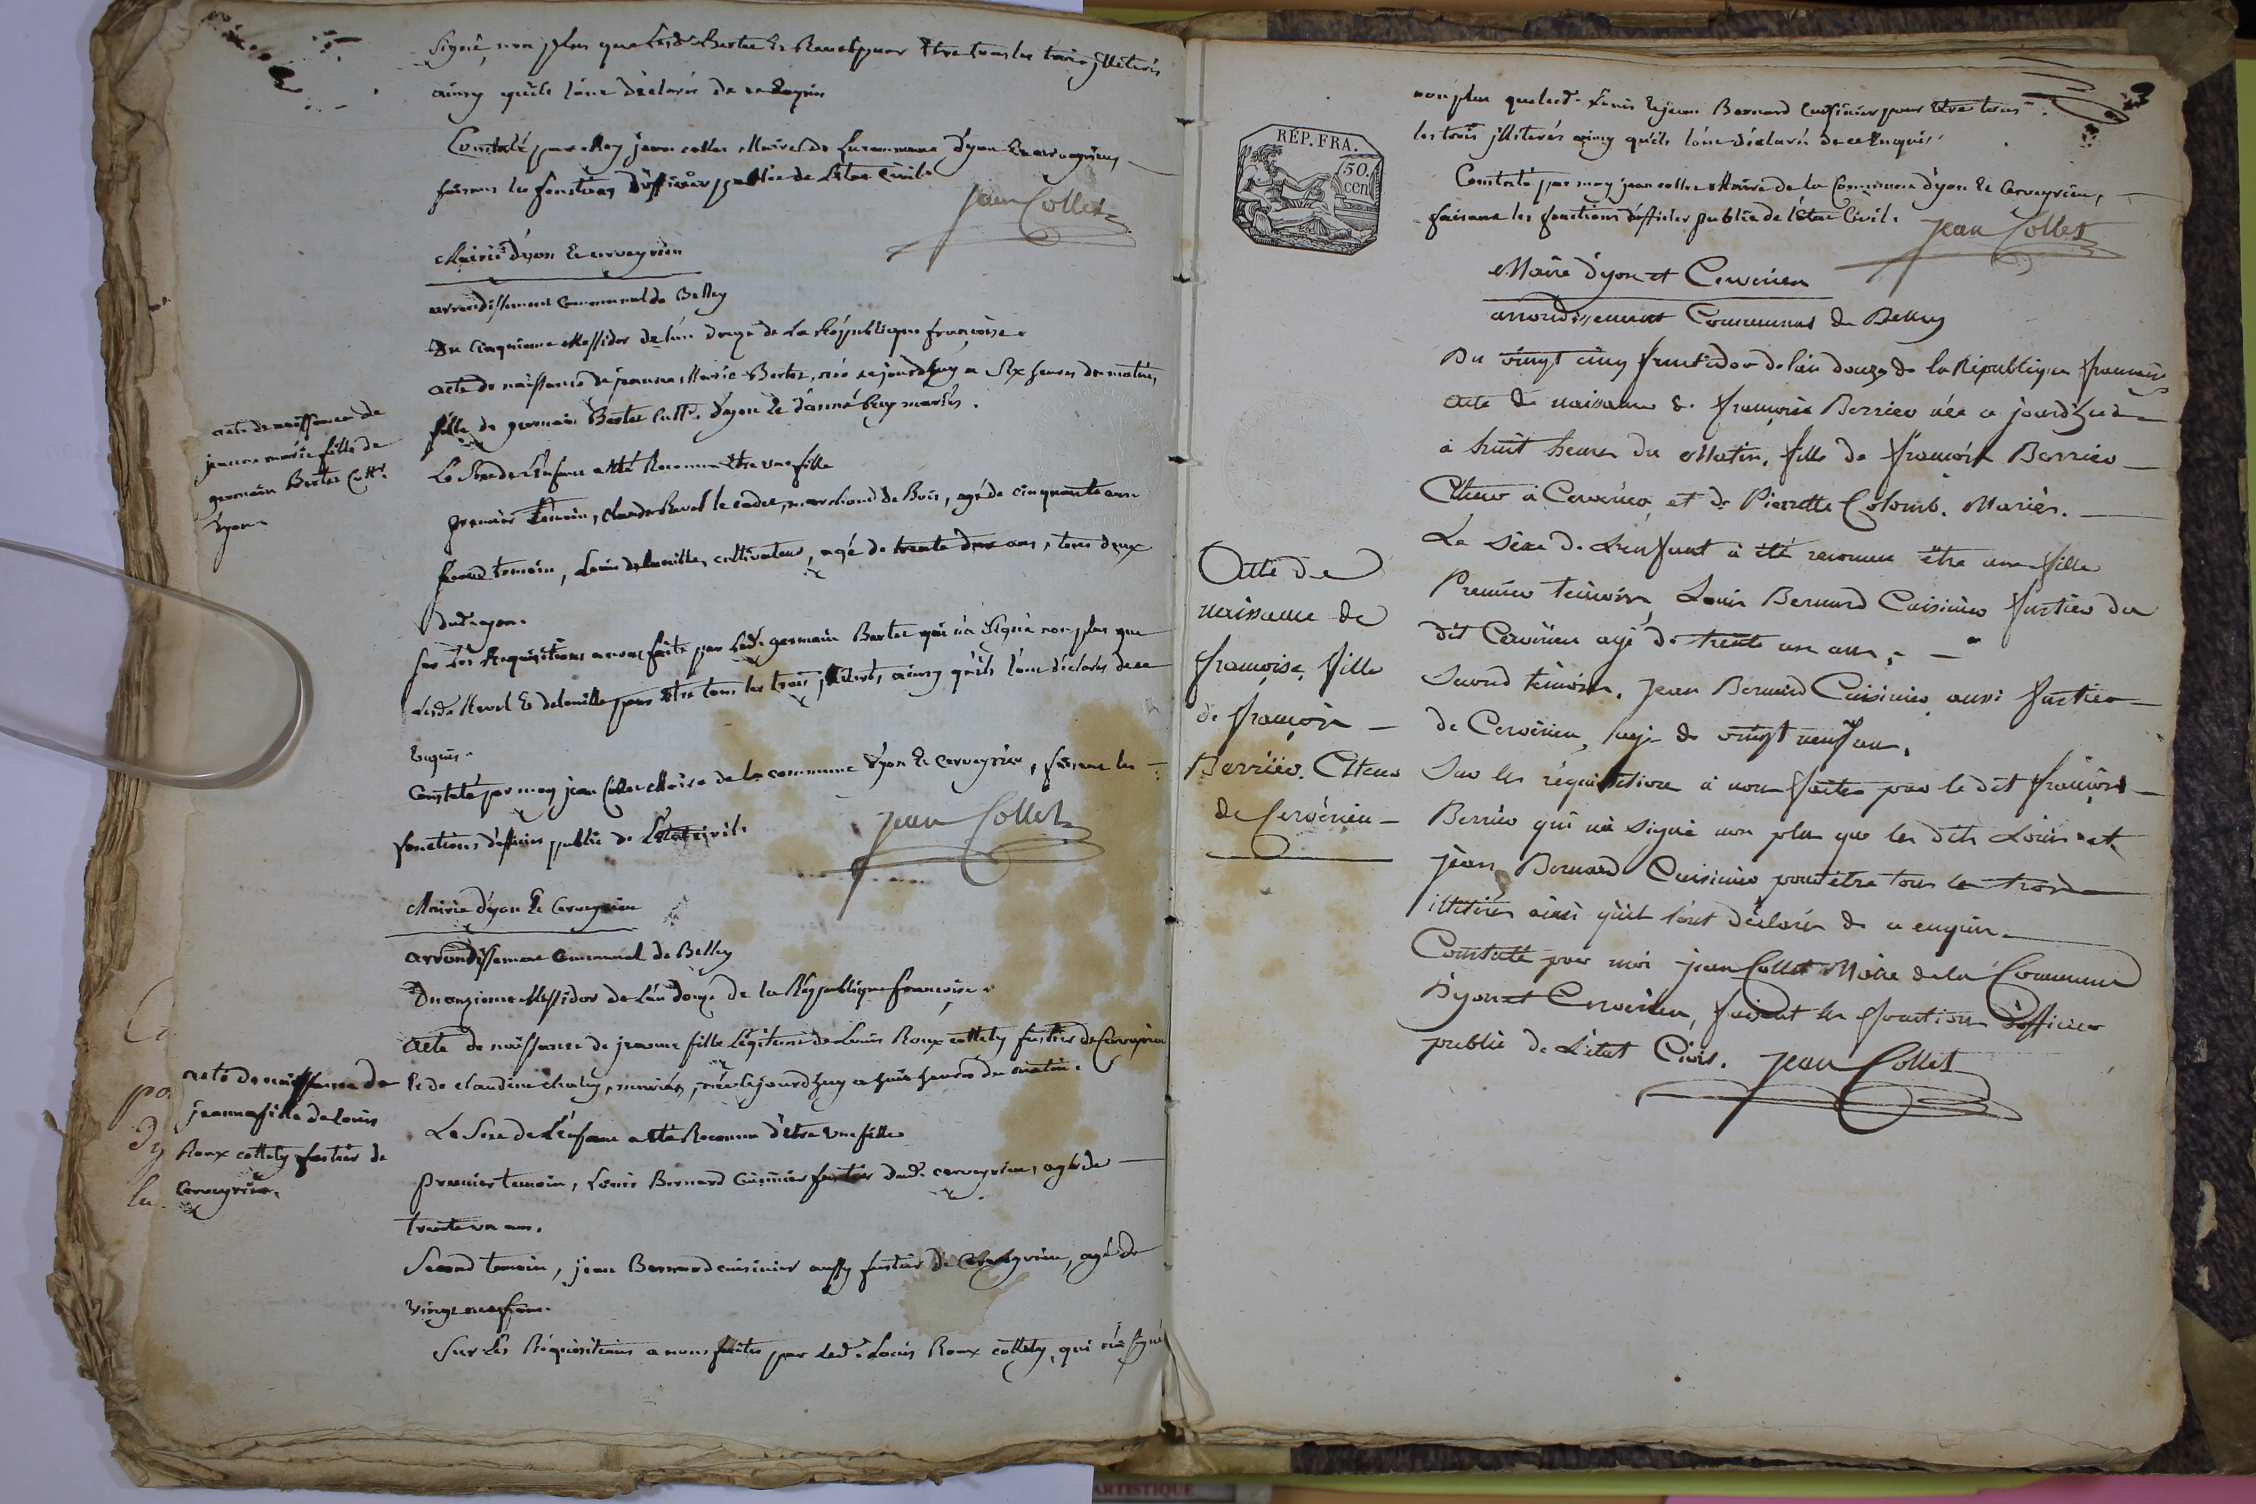 Signé, non plus que lesd. Bertet & Revel pour Etre tous les trois jlliterés
ainsy qu'ils l'ont déclarés de ce Enquis
Constaté par Moy jean collet Maire de la commune d'yon & cerveyrieu,
faisant les fonctions d'officier public de L'etat Civil.
Jean Collet
Mairie d'yon & cerveyrieu
arrondissement Communal de Belley
Du Cinquieme Messidor de l'an douze de La République françoise.
acte de naissance de jeanne Marie Bertet, née ce jourdhuy a Six heures du matin,
fille de germain Bertet cultr. d'yon & d'anné buy mariés.
acte de naissance de
jeanne marie fille de
germain Bertet Cultr.
d'yon
Le Sexe de L'enfant a êté Reconnu Etre une fille
premier Témoin, claude Revel le cadet, marchand de Bois, agé de cinquante ans
second temoin, Louis delouille, cultivateur, agé de trente deux ans, tous deux
dud. yon.
Sur Les Requisitions a nous faite par Led. germain Bertet qui n'a Signé non plus que
Lesds Revel & delouille pour etre tous les trois jlliterés, ainsy qu'ils l'ont déclarés de ce
Enquis.
Constaté par moy jean Collet Maire de la commune d'yon & Cerveyrieu, faisant les
fonctions d'officier public de L'Etat civil.
Jean Collet
Mairie d'yon & Cerveyrieu
arrondissement Communal de Belley
Du onzieme Messidor de L'an Douze de la République françoise.
Acte de naissance de jeanne fille Légitime de Louis Roux cottety fustier de Cerveyrieu
& de claudine chaley, mariés, née Cejourdhuy a huit heures du matin.
acte de naissance de
jeanne fille de Louis
Roux cottety fustier de
Cerveyrieu.
Le Sexe de L'enfant a êté Reconnu d'Etre Une fille
premier temoin, Louis Bernard Cuisinier fustier dud. cerveyrieu, agé de
trente un ans.
Second temoin, jean Bernard cuisinier aussy fustier de Cerveyrieu, agé de
vingt neuf ans.
Sur Les Réquisitions a nous faites par led. Louis Roux cottety, qui n'a signé
RÉP. FRA.
50.
cen
non plus que lesd. Louis & jean Bernard Cuisinier pour Etre tous
les trois jlliterés ainsy qu'ils l'ont déclaré de ce Enquis.
Constaté par moy jean collet Maire de la Commune d'yon & Cerveyrieu,
faisant les fonctions d'officier public de l'état Civil.
Jean Collet
Mairie d'yon et Cervérieu
arrondissement Communal de Belley
Du vingt cinq fructidor de l'an douze de la République française
acte de naissance de françoise Berrier née ce jourd'hui
à huit heures du Matin, fille de françois Berrier
Clteur à Cervérieu, et de Pierrette Colomb. Mariés.
Le Sexe de L'enfant à été reconnu être une fille
Acte de
naissance de
françoise, fille
de françois
Berrier. Clteur
de Cervérieu
Premier témoin, Louis Bernard Cuisinier fustier du
dit Cervérieu agé de trente un ans,
Second témoin, Jean Bernard Cuisinier aussi fustier
de Cervérieu, agé de vingt neuf ans.
Sur les réquisitions à nous faites par le dit françois
Berrier qui n'a signé non plus que les dits Louis et
jean Bernard Cuisinier pour être tous les trois
illitérés ainsi qu'ils l'ont déclarés de ce enquis.
Constaté par moi jean Collet Maire de la Commune
D'yon et Cervérieu, faisant les fonctions d'officier
public de L'état Civil. Jean Collet
ARTISTIQUE